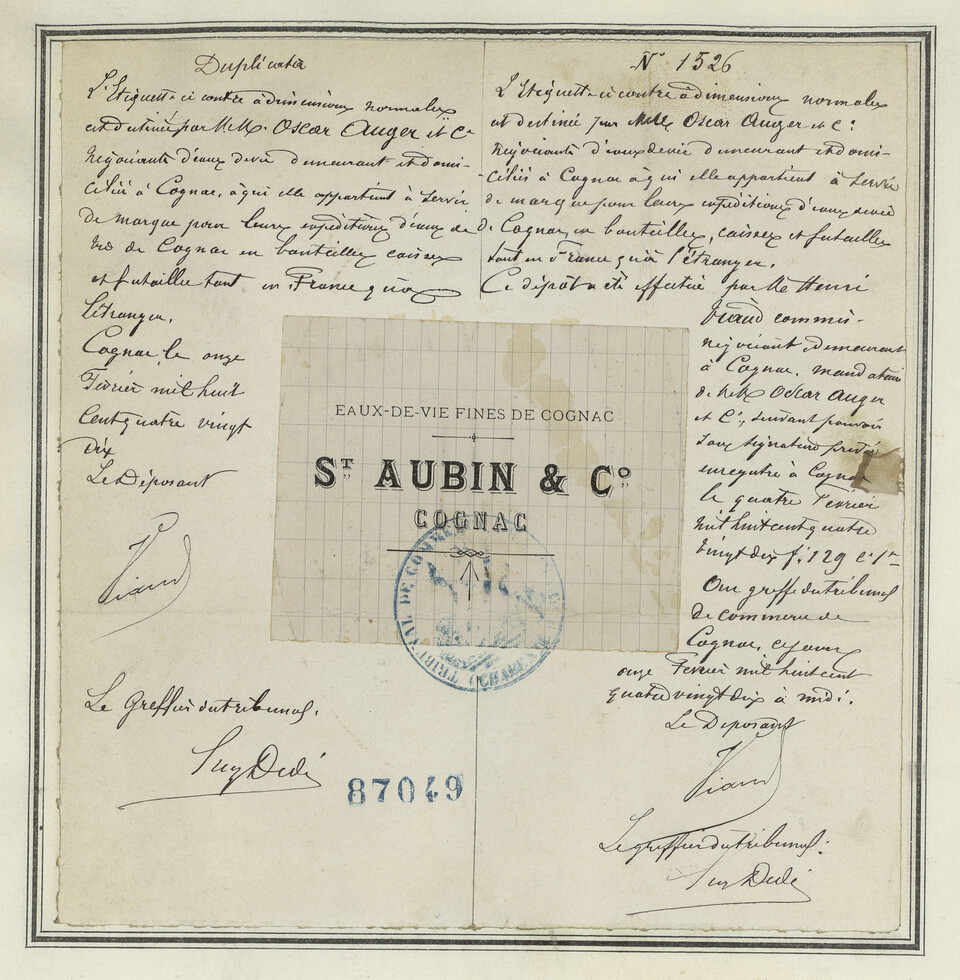 Duplicata
L'Etiquette ci contre à dimensions normales
est destinée par M.M. Oscar Auger et Cie
Négociants d'eaux de vie demeurant et domi-
ciliés à Cognac, à qui elle appartient à servir
de marque pour leurs expéditions d'eaux de
vie de Cognac en bouteilles caisses
et futailles tant en France qu'à
l'étranger.
Cognac le onze
Février mil huit
cent quatre vingt
dix
Le Déposant
Viaud
Le Greffier du tribunal.
87049
No 1526
L'Etiquette ci contre à dimensions normales
est destinée par MM Oscar Auger et Cie
Négociants d'eaux de vie demeurant et domi-
ciliés à Cognac à qui elle appartient à servir
de marque pour leurs expéditions d'eaux de vie
de Cognac en bouteilles, caisses et futailles
tant en France qu'à l'étranger.
Ce dépôt a été effectué par Me Henri
Viaud commis-
négociant demeurant
à Cognac, mandataire
de M.M. Oscar Auger
et Cie, suivant pouvoir
sous signature privée
enregistré à Cognac
le quatre Février
mil huit cent quatre
vingt dix fo 129 c. 1re
Au greffe du tribunal
de commerce de
Cognac, ce jour
onze Février mil huit cent
quatre vingt dix à midi.
Le Déposant
Viaud
Le greffier du tribunal:
EAUX-DE-VIE FINES DE COGNAC
ST AUBIN & Co
COGNAC
TRIBUNAL DE COMMERCE